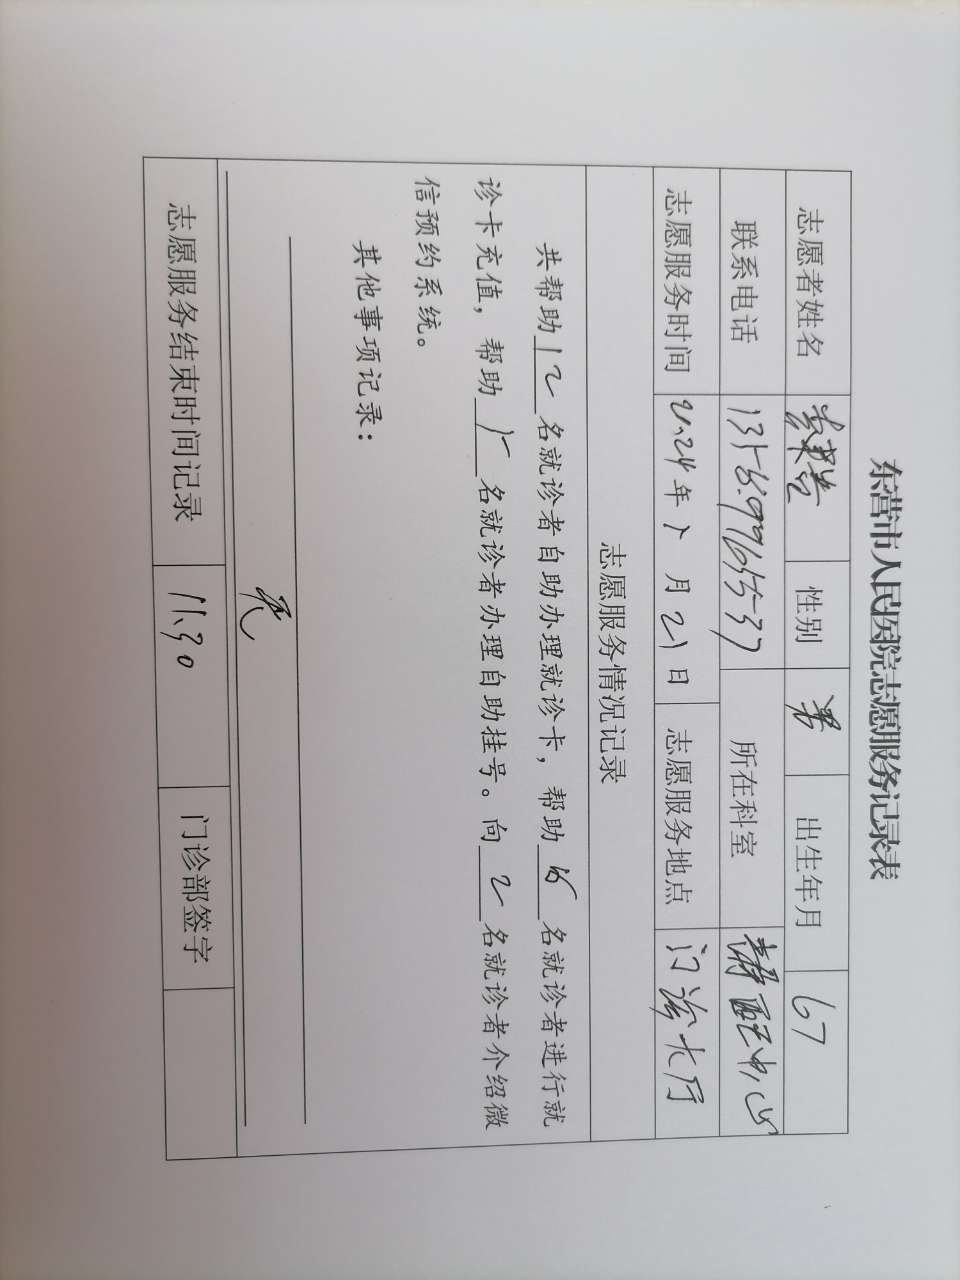 东营市人民医院志愿服务记录表
志愿者姓名 性别 男 出生年月 67
联系电话 所在科室 静配中心
志愿服务时间 2024年 月21日 志愿服务地点 门诊大厅
志愿服务情况记录
共帮助12名就诊者自助办理就诊卡，帮助 名就诊者进行就
诊卡充值，帮助 名就诊者办理自助挂号。向2名就诊者介绍微
信预约系统。
其他事项记录：
无
志愿服务结束时间记录 11:30 门诊部签字